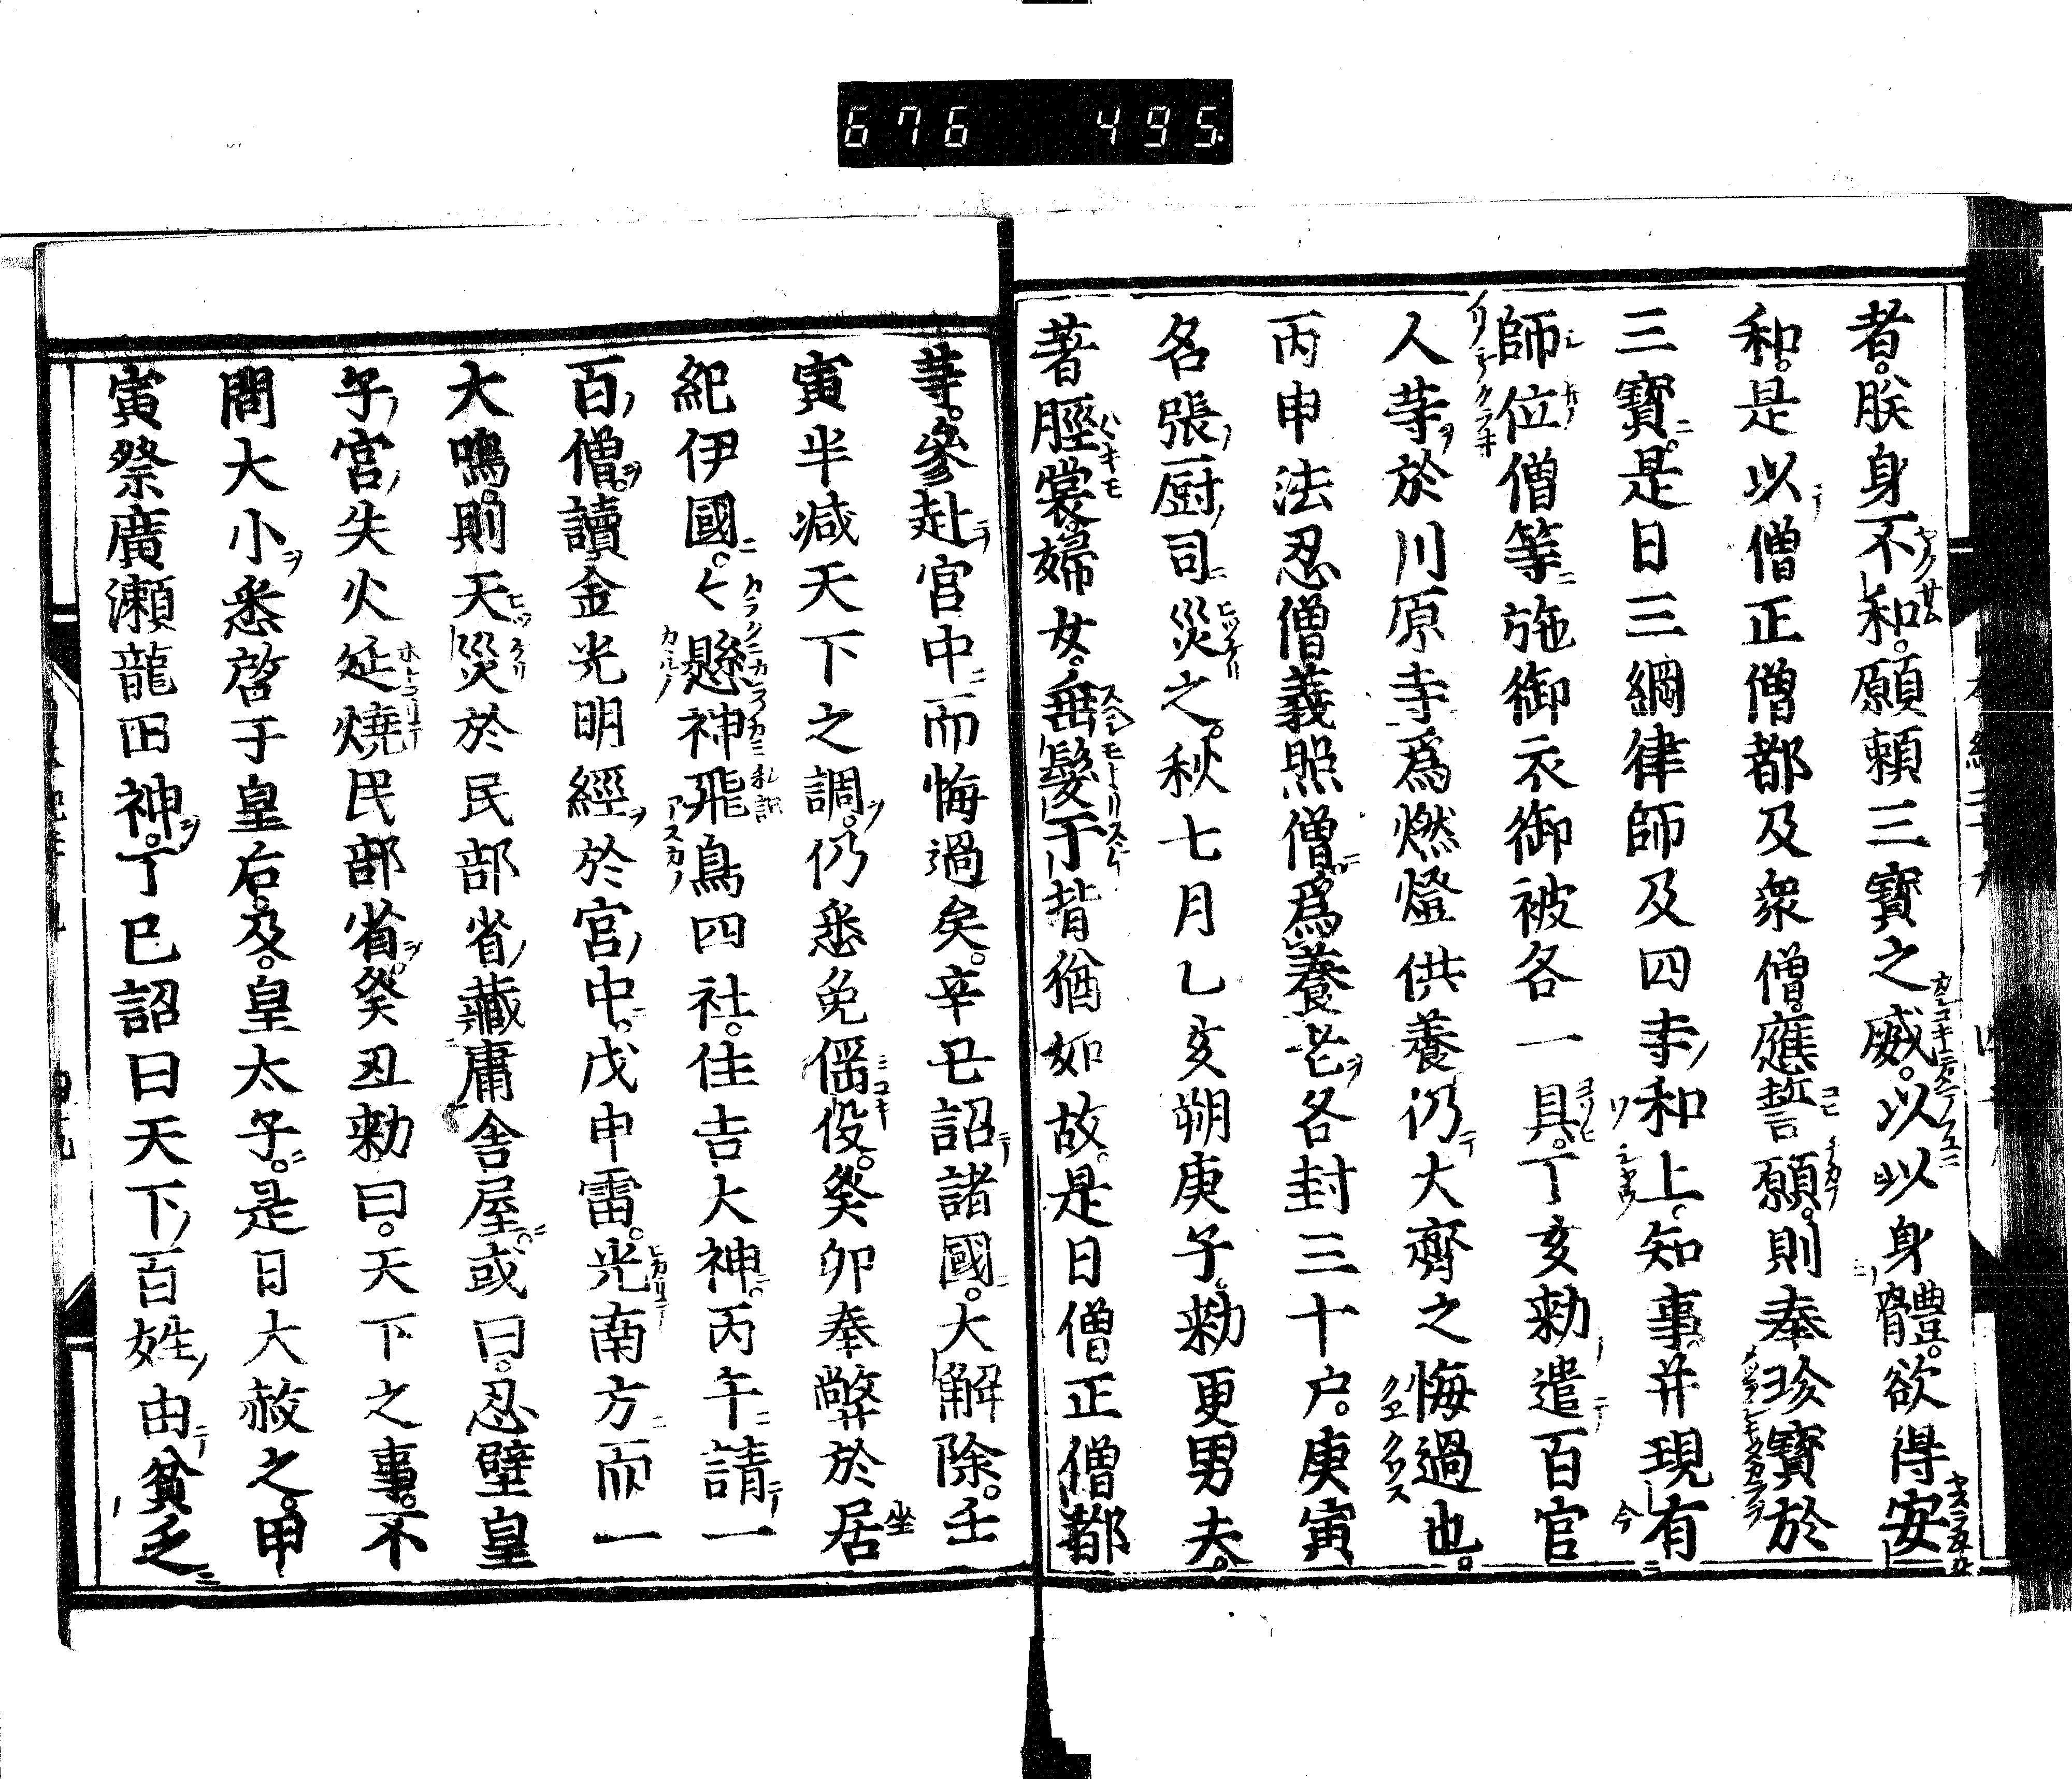 676 495
者。朕身不和。願頼三寶之威。以以身體。欲得安
和。是以僧正僧都及衆僧。應誓願。則奉珍寶於
三寶。是日三綱律師及四寺和上。知事。并現有
師位僧等施御衣御被各一具。丁亥勅遣百官
人等於川原寺爲燃燈供養仍大齊之悔過也。
丙申法忍僧義照僧爲養老各封三十戸。庚寅
名張厨司災之。秋七月乙亥朔庚子。勅更男夫。
著脛裳婦女。垂髮于背猶如故。是日僧正僧都
等。參赴宮中而悔過矣。辛丑詔諸國。大解除。壬
寅半減天下之調。仍悉免徭役。癸卯奉弊於居
紀伊國。々懸神飛鳥四社。住吉大神。丙午請一
百僧。讀金光明經於宮中。戊申雷。光南方而一
大鳴。則天災於民部省藏庸舎屋。或曰。忍壁皇
子宮失火延燒民部省。癸丑勅曰。天下之事。不
問大小悉啓于皇后。及。皇太子。是日大赦之。甲
寅祭廣瀬龍田神。丁巳詔曰天下百姓由貧乏